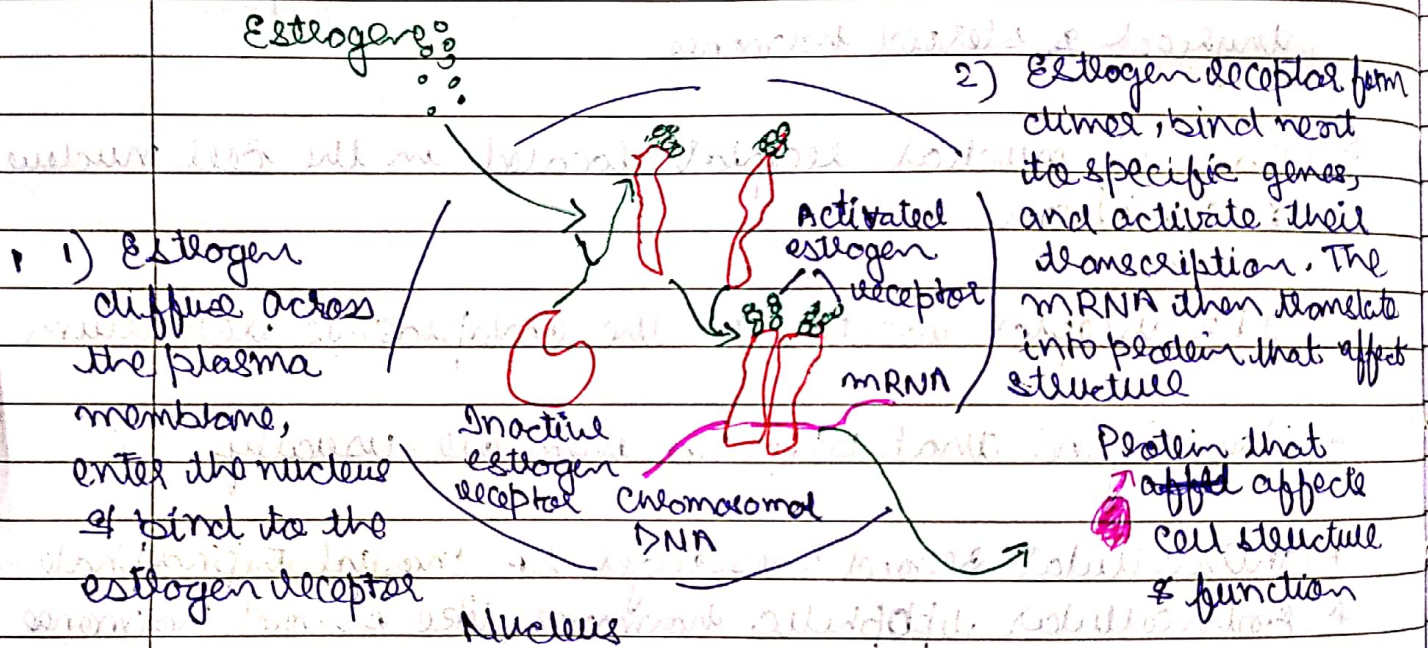 Estrogens
1) Estrogen
diffuse across
the plasma
membrane,
enter the nucleus
& bind to the
estrogen receptor
Activated
estrogen
receptor
Inactive
estrogen
receptor
mRNA
Chromosomal
DNA
Nucleus
2) Estrogen receptor form
dimer, bind next
to specific genes,
and activate their
transcription. The
mRNA then translate
into protein that affect
structure
Protein that
affects
cell structure
& function